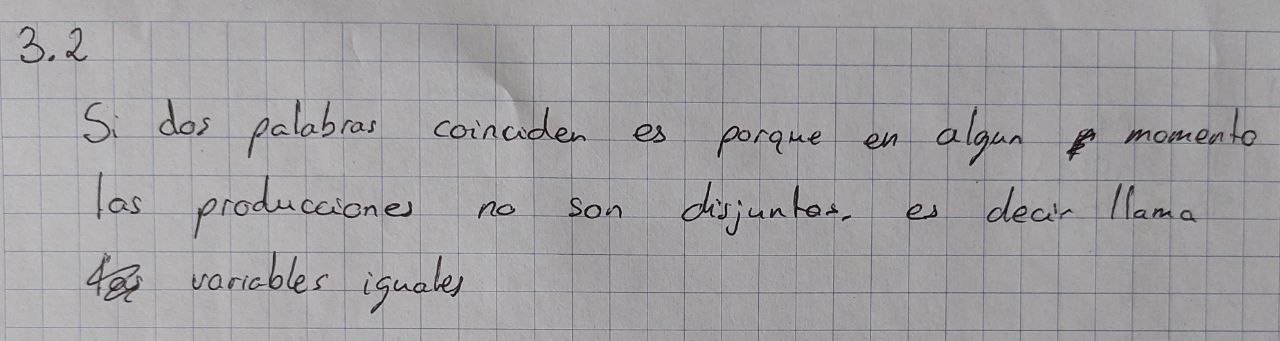 3.2
Si dos palabras coinciden es porque en algun momento
las producciones no son disjuntas. es decir llama
variables iguales